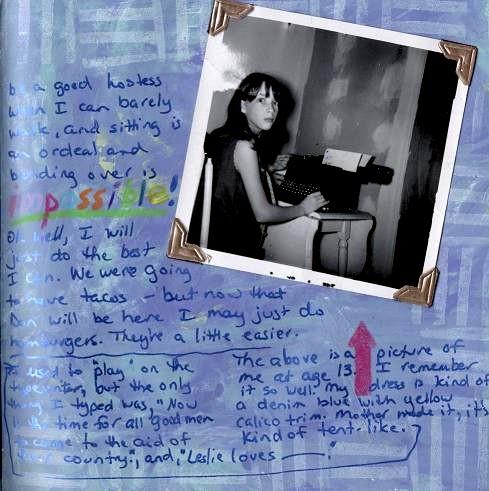 be a good hostess
when I can barely
walk, and sitting is
an ordeal and
bending over is
impossible!
Oh well, I will
just do the best
I can. We were going
to have tacos - but now that
Dan will be here I may just do
hamburgers. They're a little easier.
I used to "play" on the
typewriter, but the only
thing I typed was, "Now
is the time for all good men
to come to the aid of
their country.", and, "Leslie loves ——."
The above is a picture of
me at age 13. I remember
it so well. My dress is kind of
a denim blue with yellow
calico trim. Mother made it, it's
kind of tent-like.